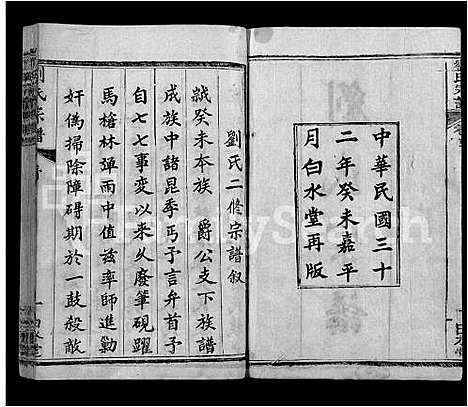 中華民國三十
二年癸未嘉平
月白水堂再版
劉氏二修宗譜叙
歲癸未本族 爵公支下族譜
成族中諸昆季丐予言弁首予
自七七事變以來廢筆硯躍
馬槍林彈雨中值兹率師進勦
奸偽掃除障碍期於一鼓殺敵
劉氏宗譜
FamilySearch